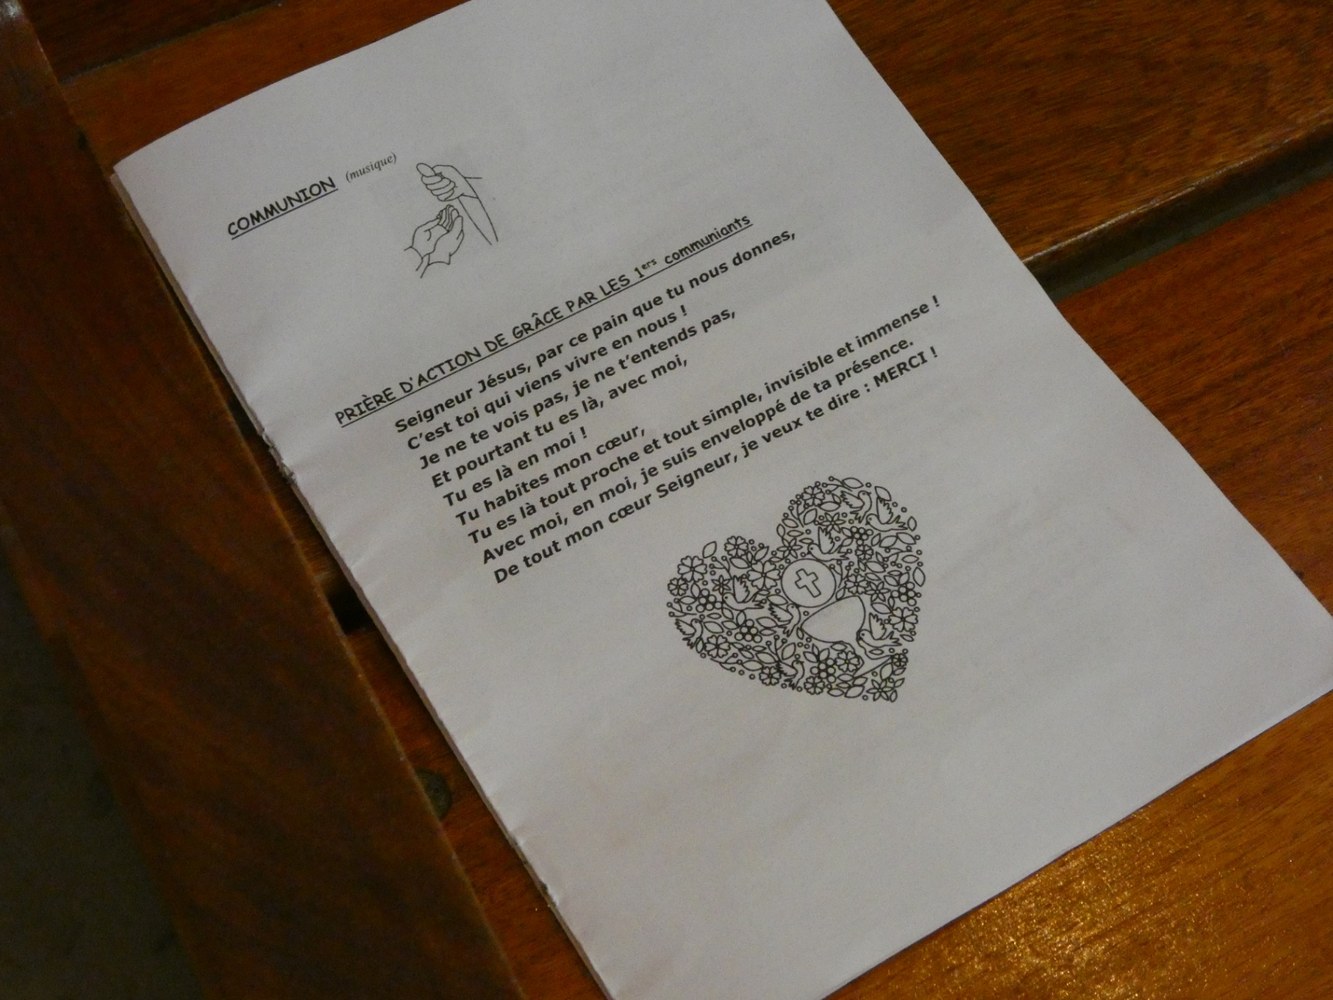 COMMUNION (musique)
PRIÈRE D'ACTION DE GRÂCE PAR LES 1ers communiants
Seigneur Jésus, par ce pain que tu nous donnes,
C'est toi qui viens vivre en nous !
Je ne te vois pas, je ne t'entends pas,
Et pourtant tu es là, avec moi,
Tu es là en moi !
Tu habites mon cœur,
Tu es là tout proche et tout simple, invisible et immense !
Avec moi, en moi, je suis enveloppé de ta présence.
De tout mon cœur Seigneur, je veux te dire : MERCI !